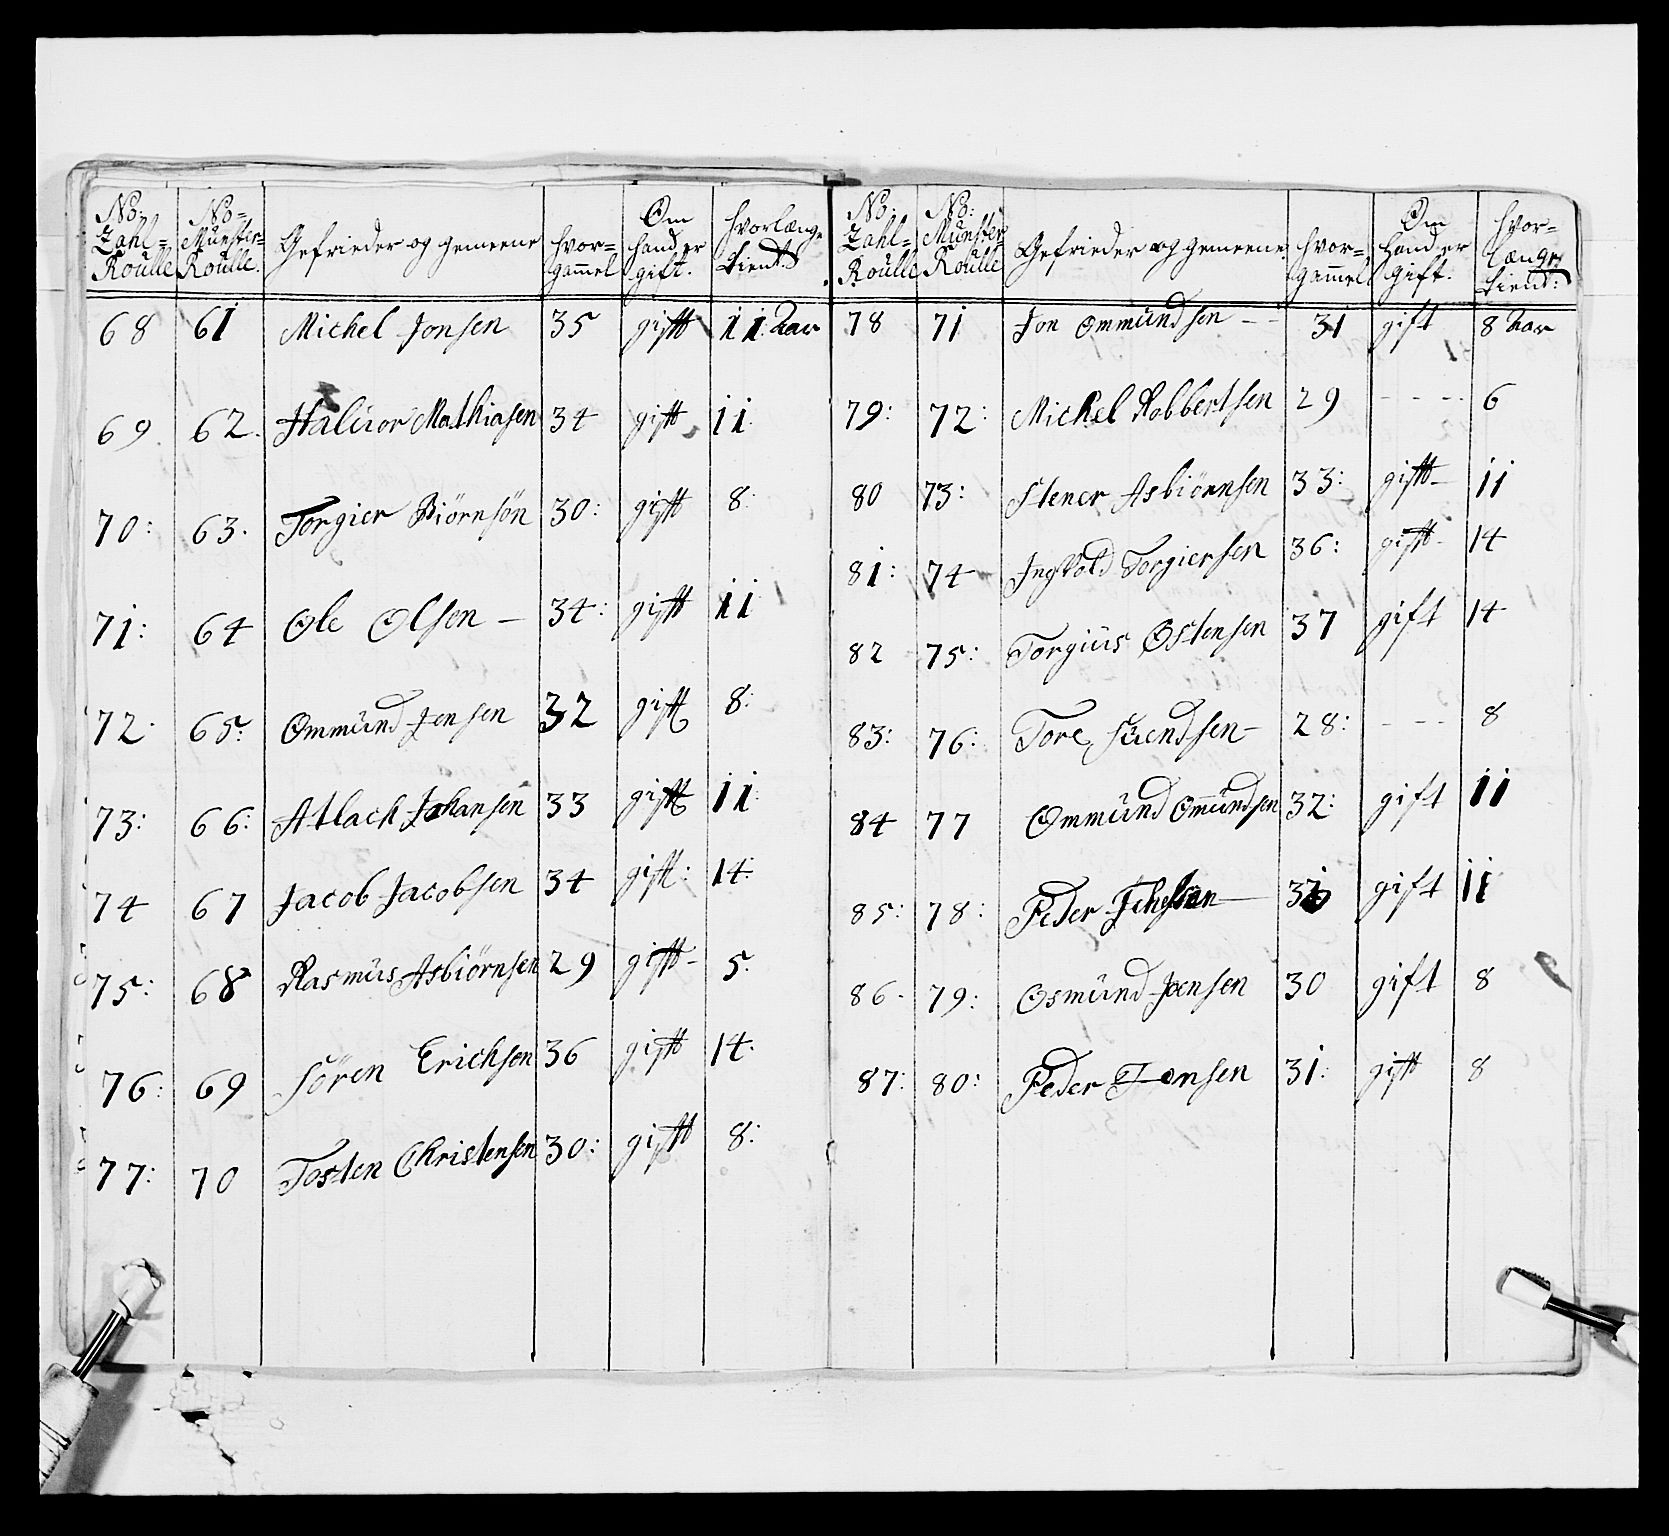 No: Zahl= Roulle | No= Münster= Roulle. | Gefrieder og gemeene | hvor= gammel | Om hand er gift. | hvorlænge tient
68 61 Michel Jonsen 35 gift 11 Aar
69. 62. Halvor Mathiasen 34 gift 11.
70: 63. Torgier Biörnsön 30: gift 8:
71: 64 Ole Olsen – 34: gift 11
72: 65: Ommünd Jensen 32 gift 8:
73: 66: Atlach Johansen 33 gift 11:
74 67 Jacob Jacobsen 34 gift: 14:
75: 68 Rasmüs Asbiörnsen 29 gift – 5.
76: 69 Sören Erichsen 36 gift 14:
77: 70 Tosten Christensen 30: gift 8:
No. Zahl= Roulle | No: Münster Roulle | Gefrieder og gemeene | hvor= gammel | Om hand er gift. | hvor= længe tient:
78 71 Jon Ommündsen – – 31 gift 8 Aar
79: 72: Michel Robbertsen 29 – – – – 6
80 73: Stener Asbiörnsen 33: gift – 11
81: 74 Ingvold Torgiersen 36: gift – 14
82 75: Torgiüs Ostensen 37 gift 14
83: 76: Tore Süendsen – 28: – – – 8
84 77 Ommünd Omündsen 32: gift 11
85: 78: Peder gift 11
86. 79: Osmünd Joensen 30 gift 8
87: 80: Peder Jonsen 31: gift 8